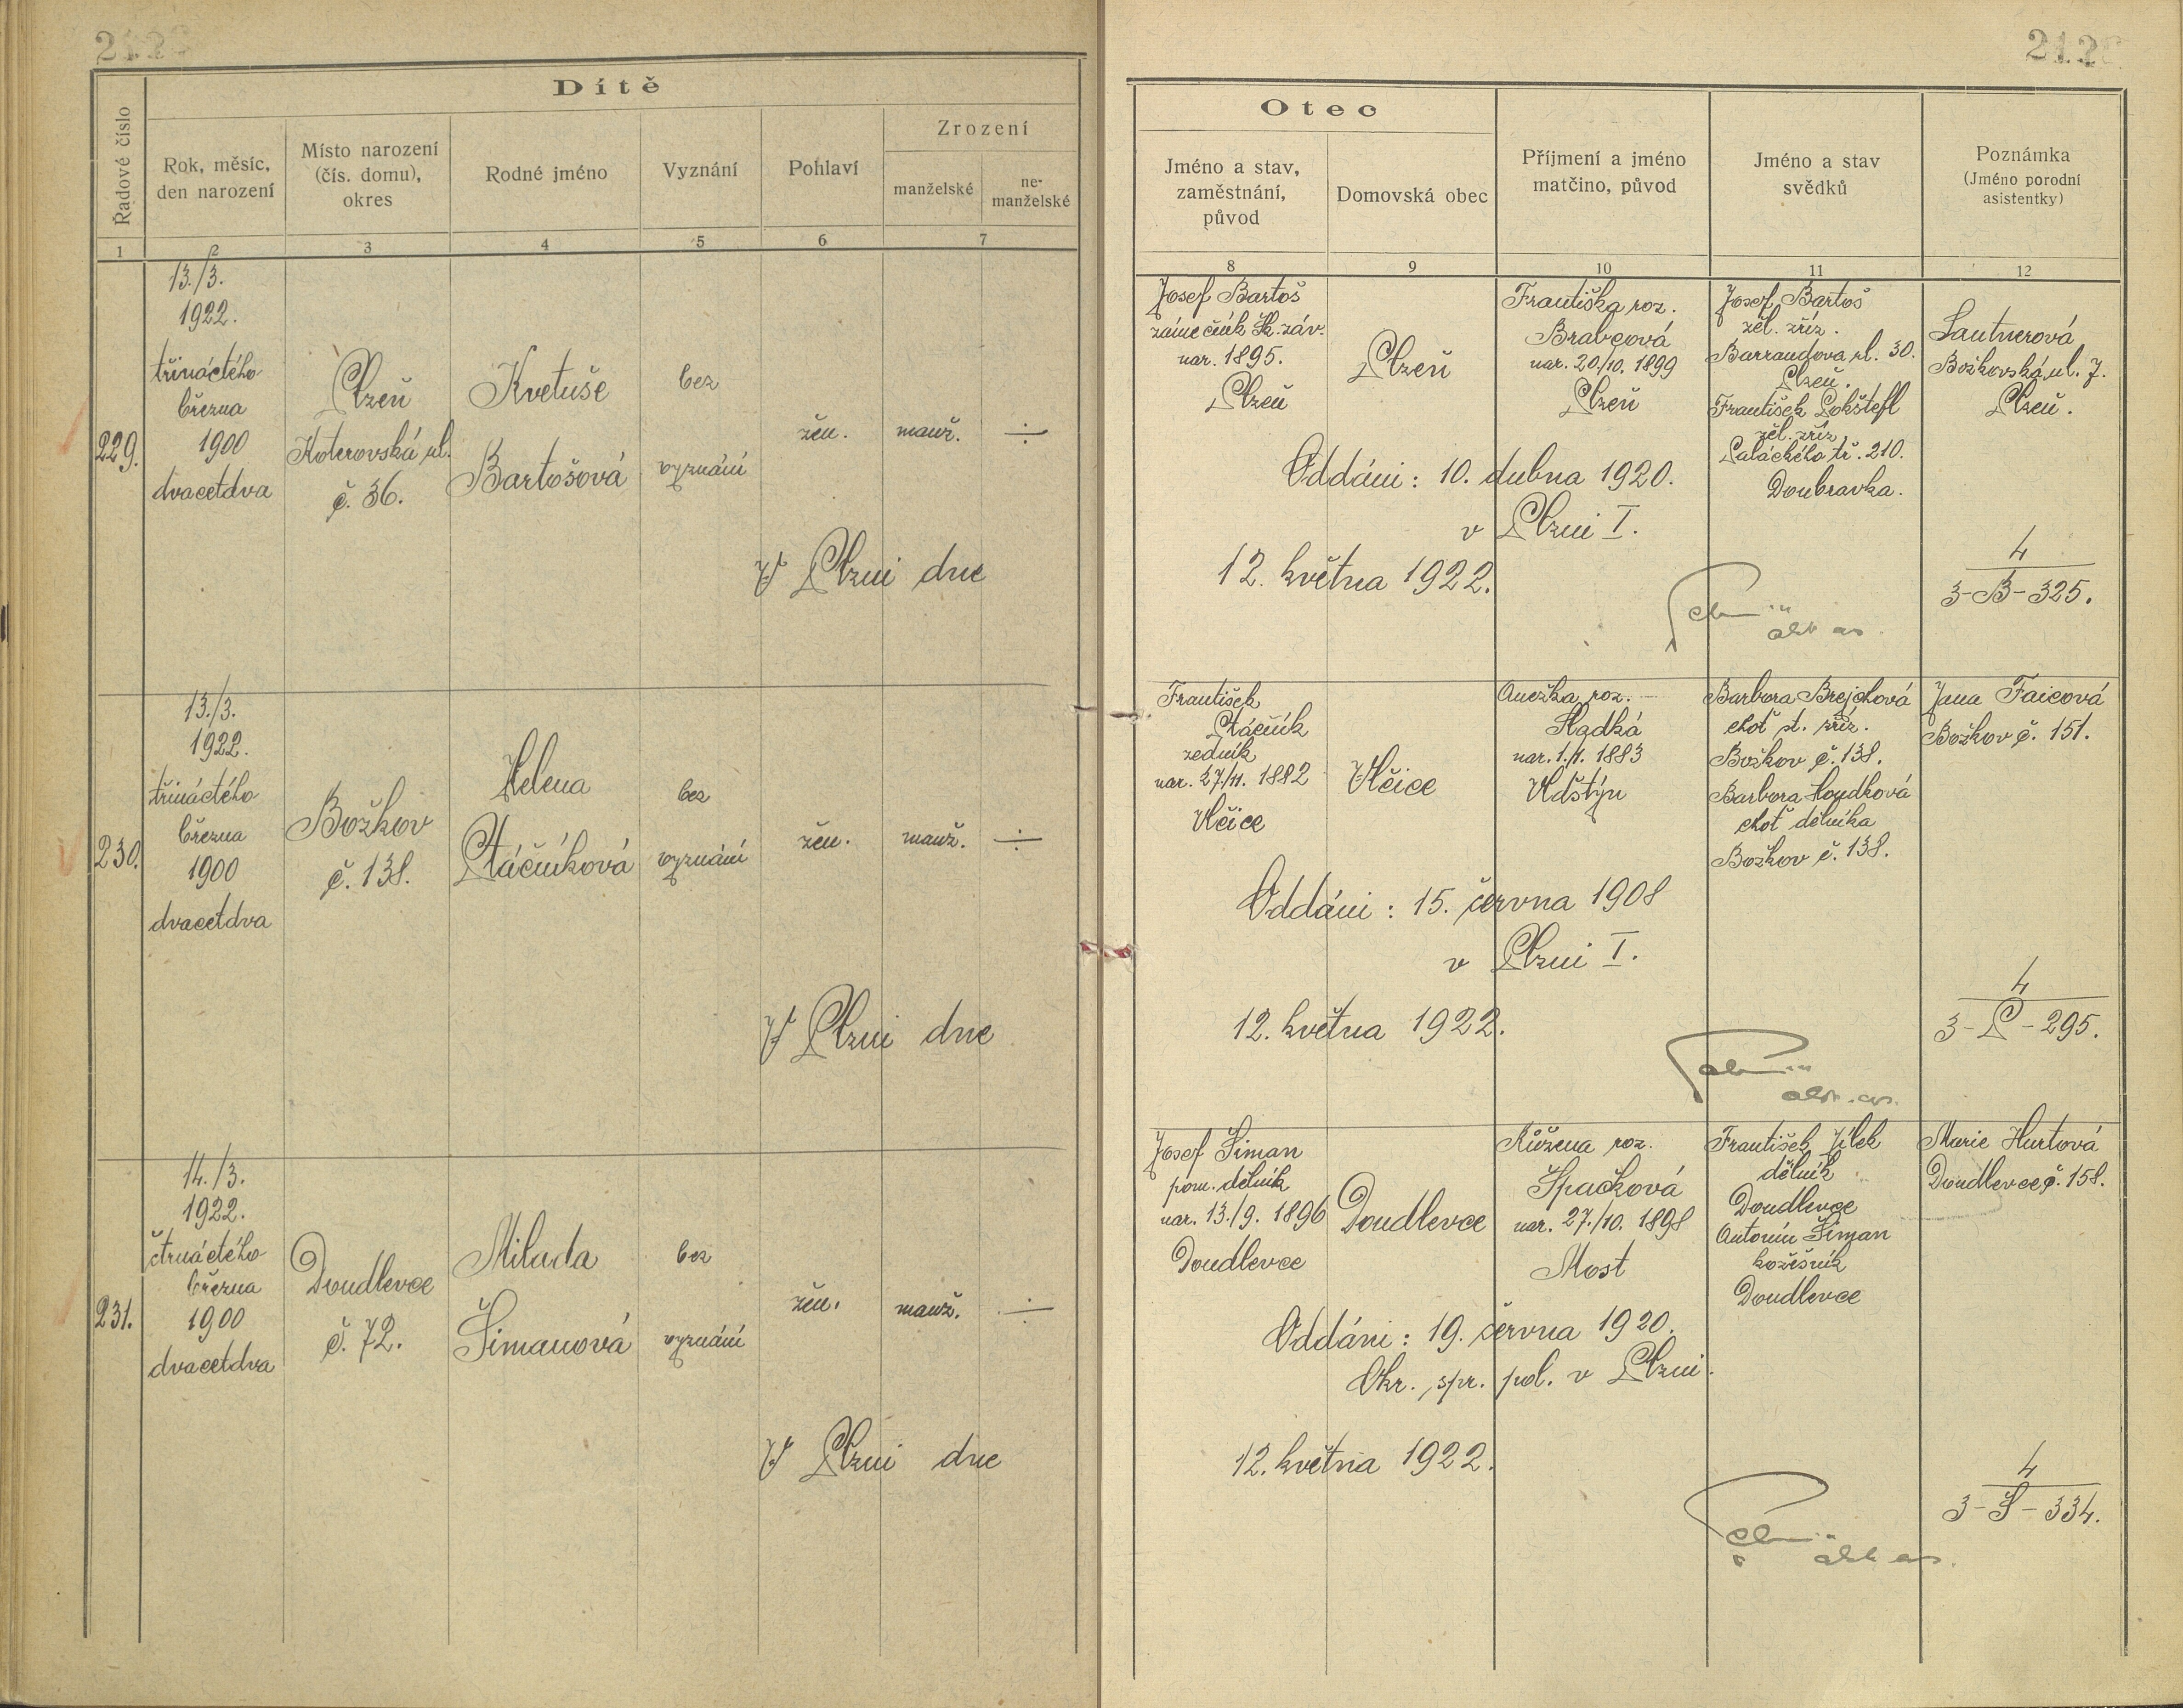 Dítě
Řadové číslo
Rok, měsíc,
den narození
Místo narození
(čís. domu),
okres
Rodné jméno
Vyznání
Pohlaví
Zrození
manželské
ne-
manželské
1 2 3 4 5 6 7
229.
13./3.
1922.
třináctého
března
1900
dvacetdva
Plzeň
Koterovská ul.
č. 36.
Kvetuše
Bartošová
bez
vyznání
žen.
manž.
÷
V Plzni dne
230.
13./3.
1922.
třináctého
března
1900
dvacetdva
Božkov
č. 138.
Helena
Ptáčníková
bez
vyznání
žen.
manž.
÷
V Plzni dne
231.
14./3.
1922.
čtrnáctého
března
1900
dvacetdva
Doudlevce
č. 72.
Milada
Šimanová
bez
vyznání
žen.
manž.
÷
V Plzni dne
Otec
Jméno a stav,
zaměstnání,
původ
Domovská obec
Příjmení a jméno
matčino, původ
Jméno a stav
svědků
Poznámka
(Jméno porodní
asistentky)
8 9 10 11 12
Josef Bartoš
zámečník Šk. záv.
nar. 1895.
Plzeň
Plzeň
Františka roz.
Brabcová
nar. 20./10. 1899
Plzeň
Josef Bartoš
žel. zříz.
Barrandova ul. 30.
Plzeň.
František Lokštefl
žel. zříz.
Palackého tř. 210.
Doubravka.
Lautnerová
Božkovská ul. 7.
Plzeň.
Oddáni: 10. dubna 1920.
v Plzni I.
12. května 1922.
4
3-B-325.
František
Ptáčník
zedník
nar. 27/11. 1882
Vlčice
Vlčice
Anežka roz.
Hadká
nar. 1./1. 1883
Vlčtýn
Barbora Brejchová
choť st. zříz.
Božkov č. 138.
Barbora Houdková
choť dělníka
Božkov č. 138.
Jana Faicová
Božkov č. 151.
Oddáni: 15. června 1908
v Plzni I.
12. května 1922.
4
3-P-295.
Josef Šiman
pom. dělník
nar. 13./9. 1896
Doudlevce
Doudlevce
Růžena roz.
Špačková
nar. 27./10. 1898
Most
František Jílek
dělník
Doudlevce
Antonín Šiman
kožešník
Doudlevce
Marie Hurtová
Doudlevce č. 158.
Oddáni: 19. června 1920.
Okr. spr. pol. v Plzni.
12. května 1922.
4
3-Š-334.